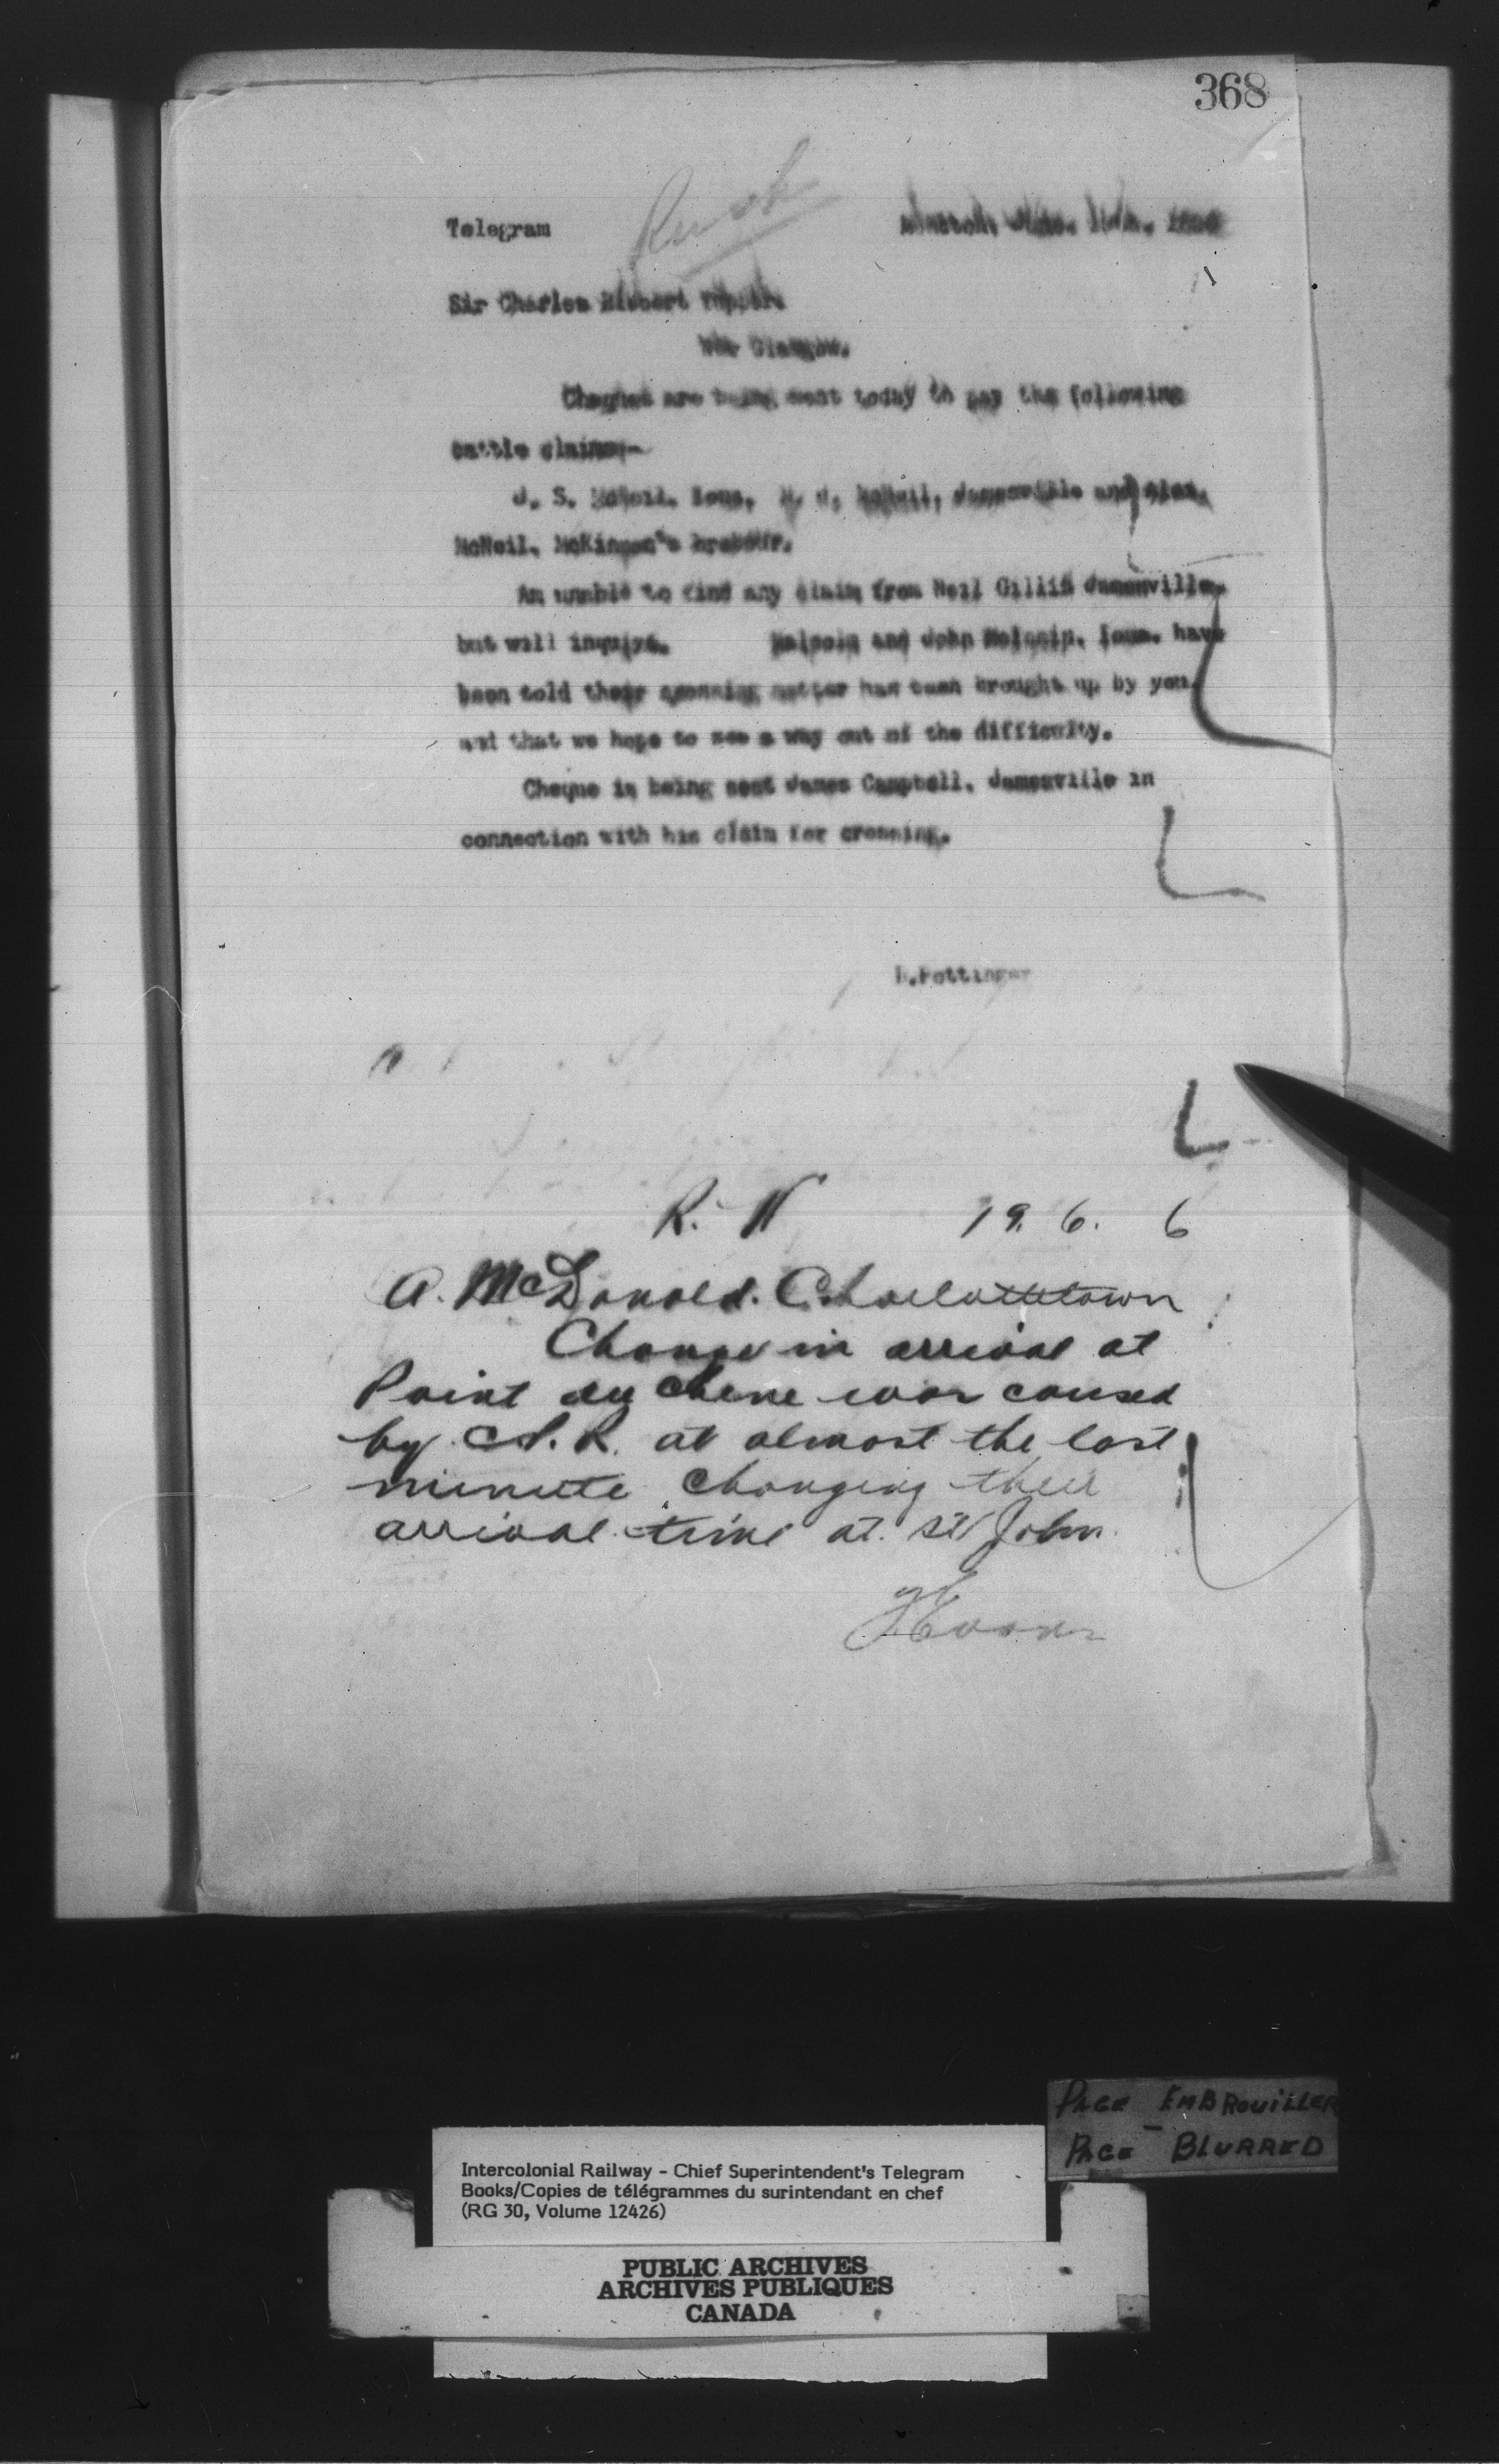 368
Telegram
Rush
Sir Charles Hibbert Tupper.
New Glasgow.
Cheques are being sent today to pay the following
cattle claims,-
J. S. McNeil, Iona, McNeil, Jamesville and Alex.
McNeil, McKinnon's
Am unable to find any claim from Neil Gillis Jamesville,
but will inquire. Malcolm and John Iona, have
been told their crossing matter has been brought up by you
and that we hope to see a way out of the difficulty.
Cheque is being sent James Campbell, Jamesville in
connection with his claim for crossing.
D.Pottinger
19. 6. 6
A. McDonald. Charlottetown
Change in arrival at
Point du Chene was caused
by C.P.R. at almost the last
minute changing their
arrival time at St John
PAGE EMBROUILLER
PAGE BLURRED
Intercolonial Railway - Chief Superintendent's Telegram
Books/Copies de télégrammes du surintendant en chef
(RG 30, Volume 12426)
PUBLIC ARCHIVES
ARCHIVES PUBLIQUES
CANADA